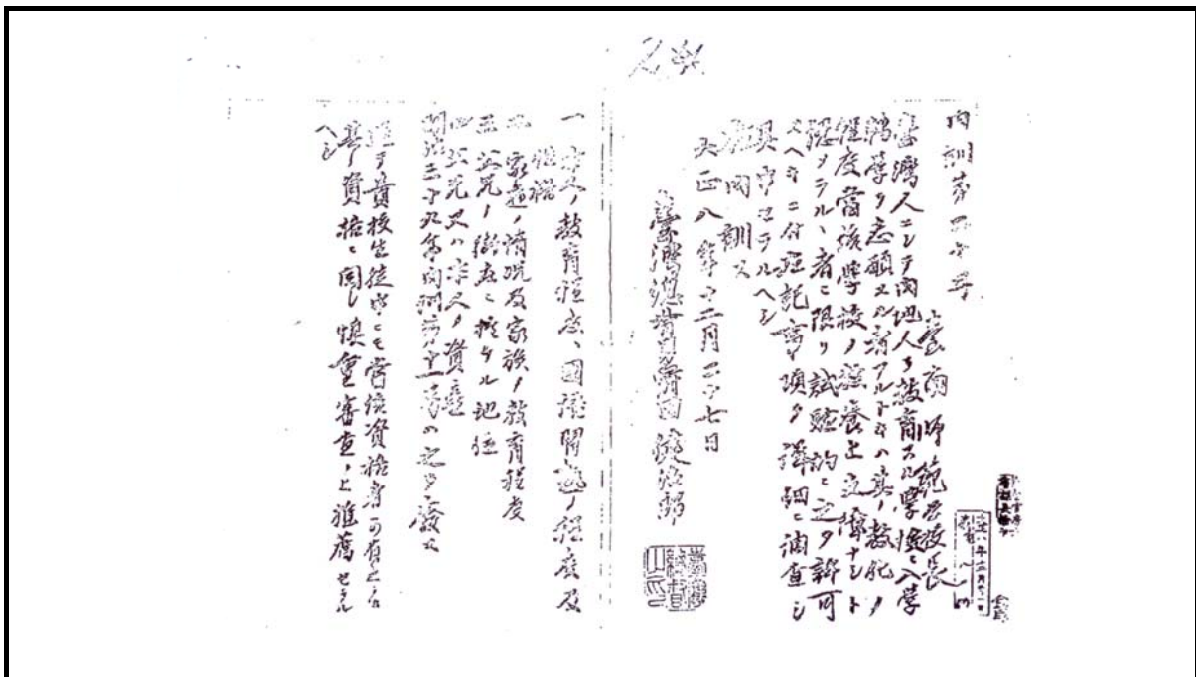 内訓第四十号
臺南師範学校長
臺灣人ニシテ内地人ヲ教育スル学校ニ入学
転学ヲ志願スル者アルトキハ其ノ教化ノ
程度當該学校ノ訓養上支障ナシト
認メラルヽ者ニ限リ試験的ニ之ヲ許可
スヘキニ付左記事項ヲ詳細ニ調査シ
具申セラルヘシ
右内訓ス
大正八年十二月二十七日
臺灣總督男爵田健治郎
臺灣總督之印
一 本人ノ教育程度、国語習熟ノ程度及
性格
二 家庭ノ情況及家族ノ教育程度
三 父兄ノ街庄ニ於ケル地位
四 父兄又ハ本人ノ資産
明治三十九年内訓第十一号ハ之ヲ廢ス
追テ貴校生徒中ニモ當該資格者可有之
其ノ資格ニ関シ慎重審査ノ上推薦セラル
ヘシ